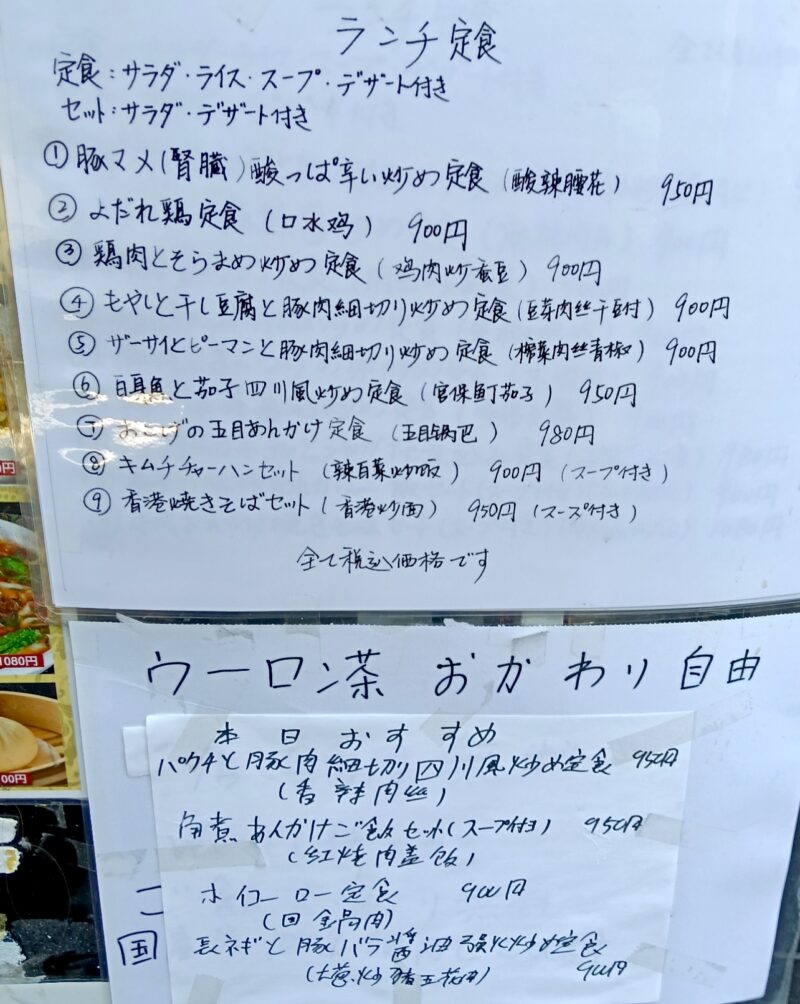 ランチ定食
定食:サラダ・ライス・スープ・デザート付き
セット:サラダ・デザート付き
①豚マメ(腎臓)酸っぱ辛い炒め定食(酸辣腰花) 950円
②よだれ鶏定食(口水鸡) 900円
③鶏肉とそらまめ炒め定食(鸡肉炒蚕豆) 900円
④もやしと干し豆腐と豚肉細切り炒め定食(豆芽肉丝干豆付) 900円
⑤ザーサイとピーマンと豚肉細切り炒め定食(榨菜肉丝青椒) 900円
⑥白身魚と茄子四川風炒め定食(宮保魚丁茄子) 950円
⑦おこげの五目あんかけ定食(五目锅巴) 980円
⑧キムチチャーハンセット(辣白菜炒飯) 900円(スープ付き)
⑨香港焼きそばセット(香港炒面) 950円(スープ付き)
全て税込価格です
ウーロン茶 おかわり自由
本日おすすめ
パクチと豚肉細切四川風炒め定食 950円
(香辣肉丝)
角煮あんかけご飯セット(スープ付き) 950円
(红烧肉盖飯)
ホイコーロー定食 900円
(回鍋肉)
長ネギと豚バラ醤油強火炒め定食
(大葱炒猪五花肉) 900円
国
1080円
00円